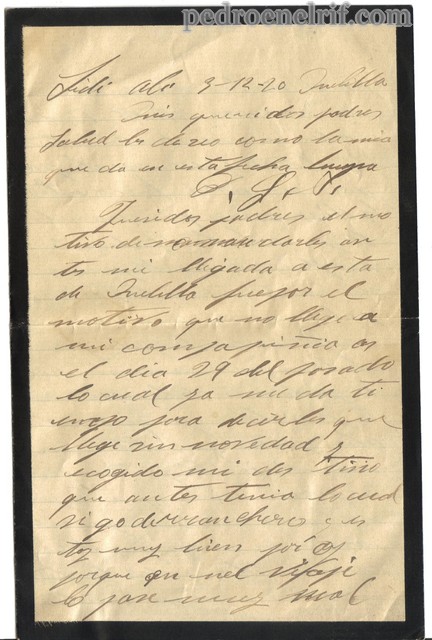 pedroenelrif.com
Sidi Ali 3-12-20 Melilla
Mis queridos padres
Salud les deseo como la mia
que da en esta fecha buena
Queridos padres el mo
tivo de no mandarles an
tes mi llegada a esta
de Melilla fue por el
motivo que no llege a
mi compañia as
el dia 29 del pasado
lo cual ya me da ti
empo para decirles que
llege sin novedad y
ecogido mi des tino
que antes tenia lo cual
sigo de rranchero y es
toy muy bien
porque en el viaje
lo pase muy mal